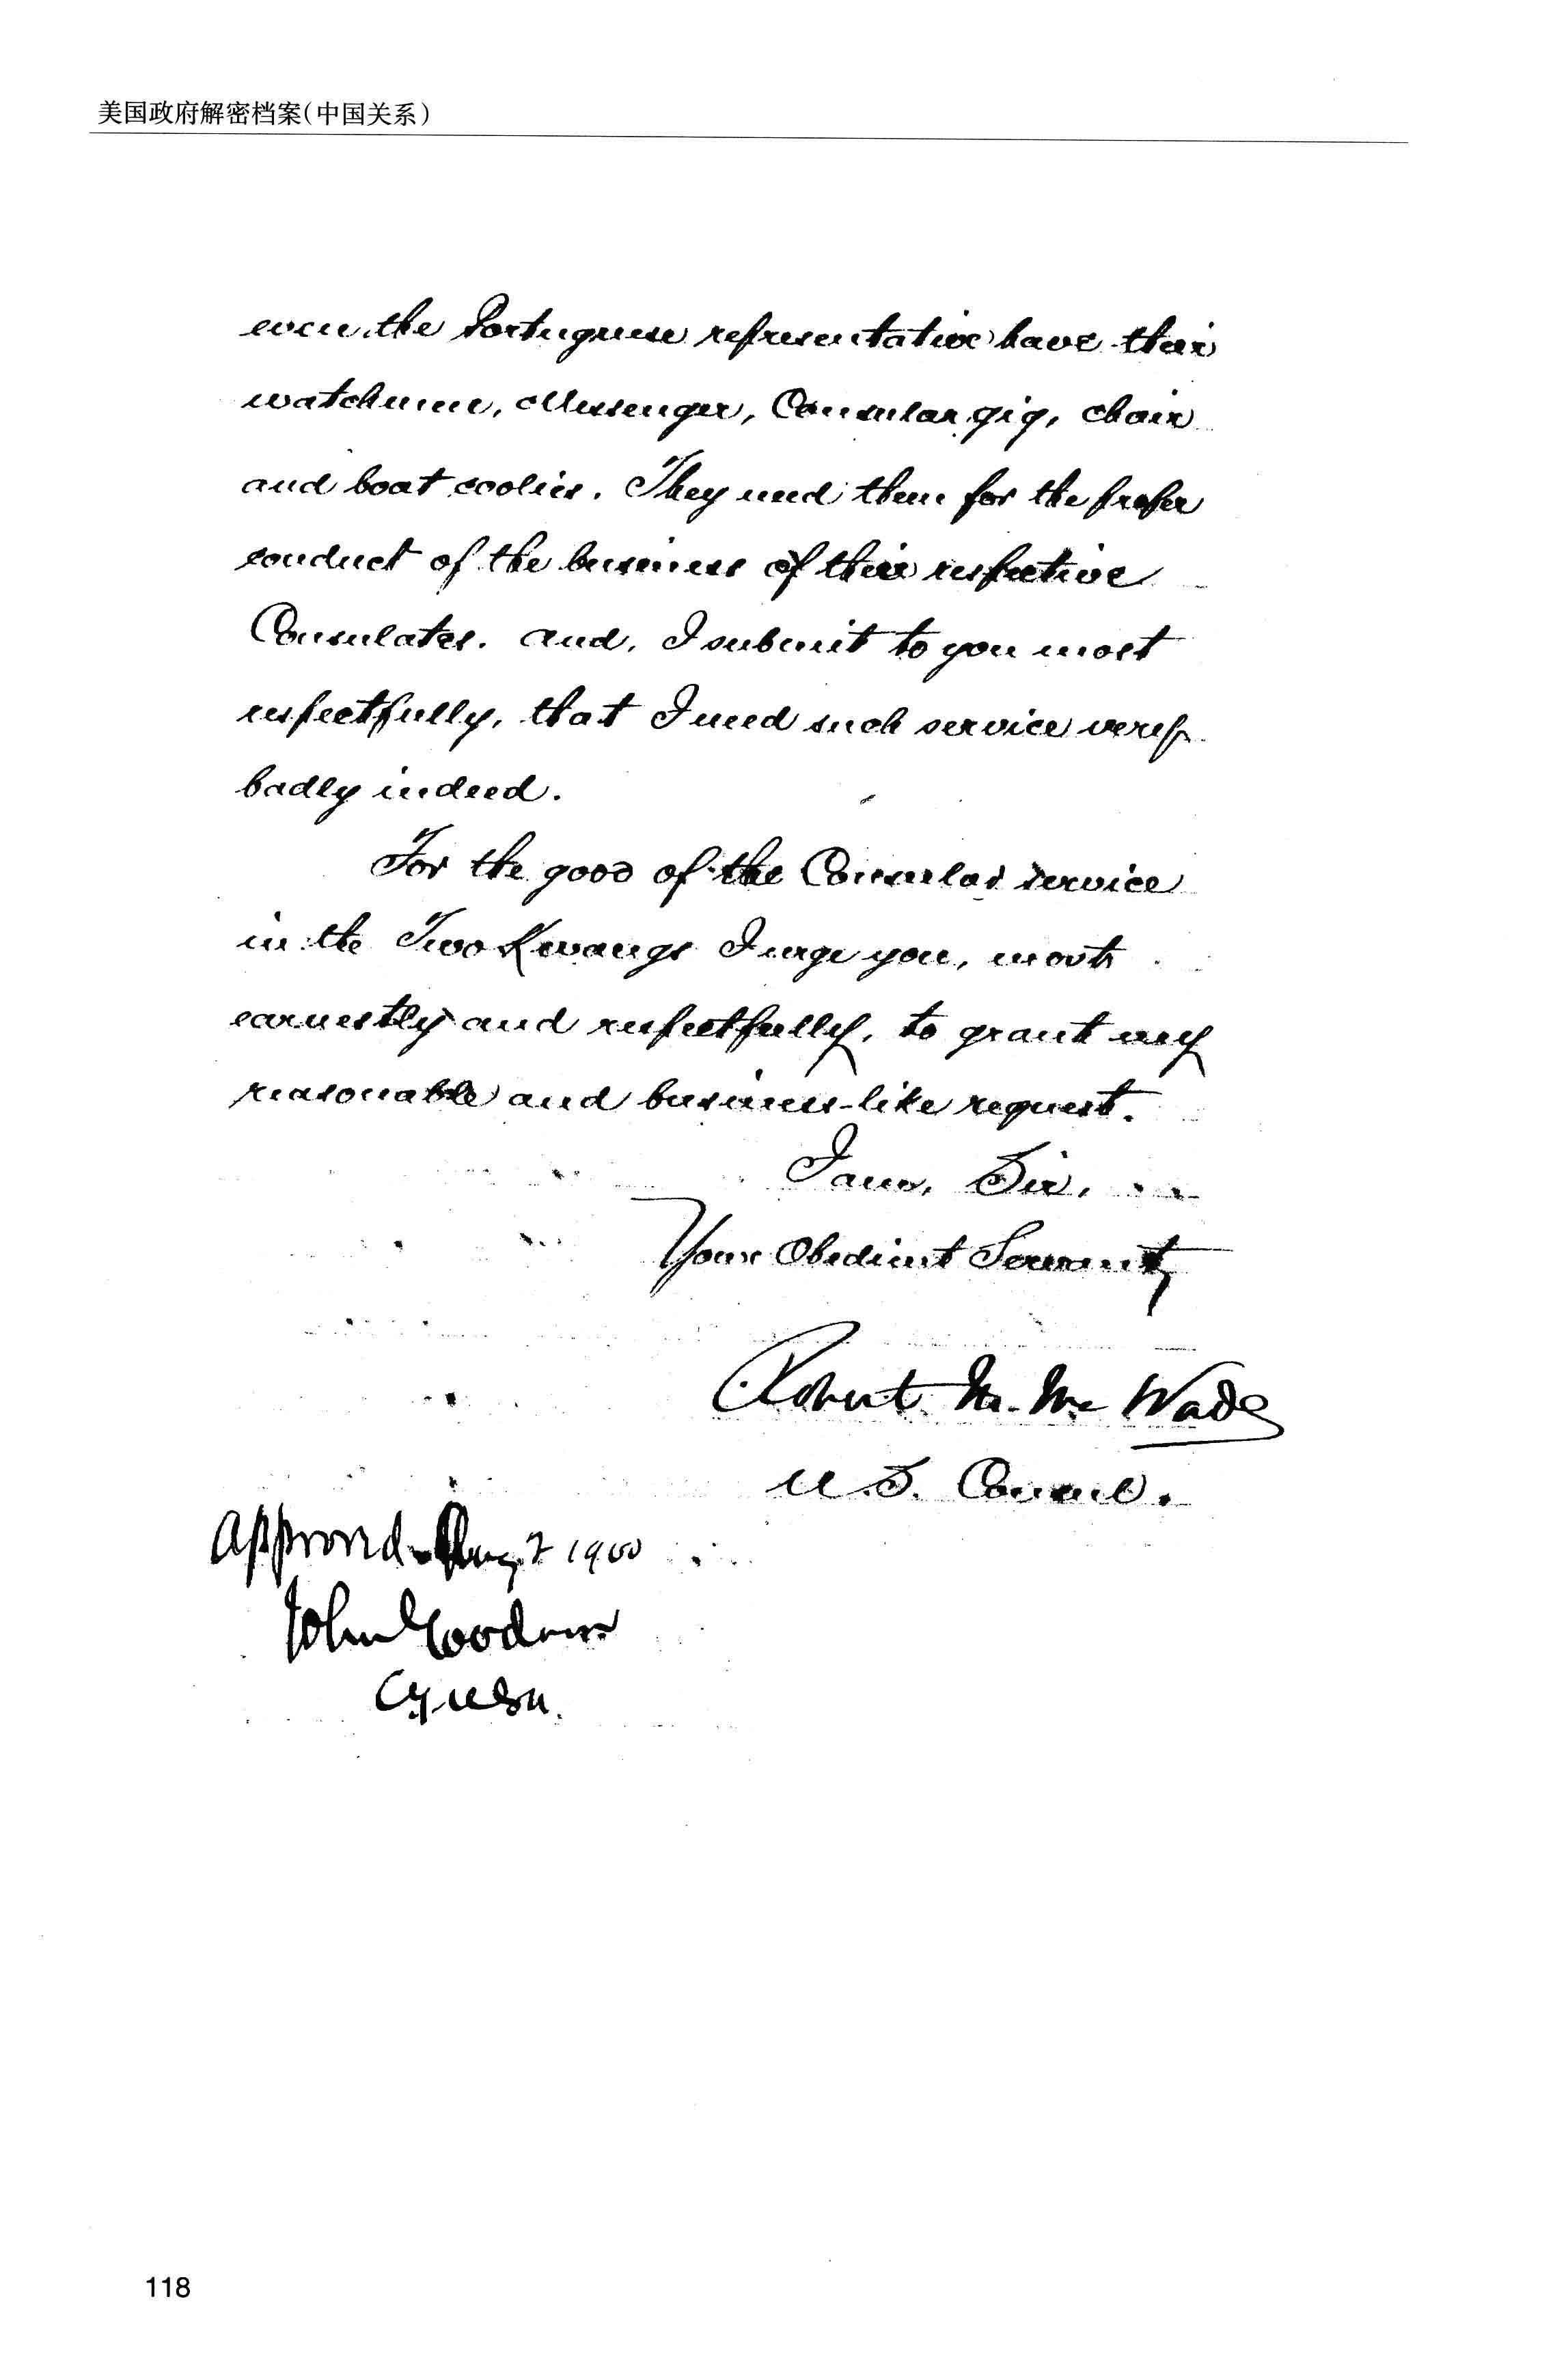 美国政府解密档案(中国关系)
even the Portuguese representative have their
watchmen, Messenger, Consular gig, chair
and boat coolies. They need them for the proper
conduct of the business of their respective
Consulates. And, I submit to you most
respectfully, that I need such service very
badly indeed.
For the good of the Consular service
in the Two Kwangs I urge you, most
earnestly and respectfully, to grant my
reasonable and business-like request.
I am, Sir,
Your Obedient Servant,
Robert M. McWade
U.S. Consul.
Approved Aug 2 1900
John Goodnow
118